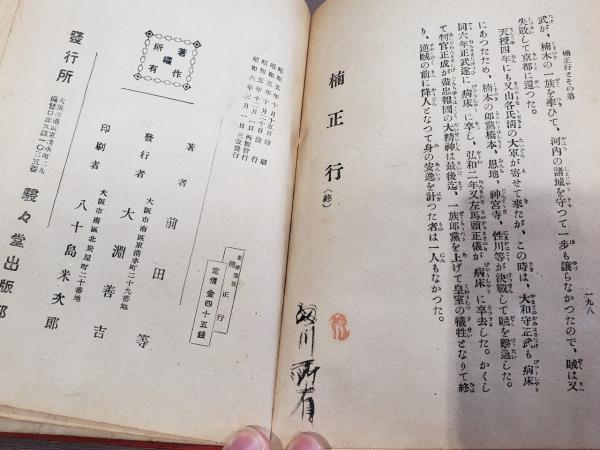 楠正行とその弟
一九八
武が、楠木の一族を率ひて、河内の諸城を守つて一歩も譲らなかつたので、賊は又
失敗して京都に還つた。
天授四年にも又山名氏清の大軍が寄せて來たが、この時は、大和守正武も病床
にあつたため、楠木の郎黨橋本、恩地、神宮寺、性川等が決戰して賊を撃退した。
同六年正武遂に病床に卒し、弘和二年又左馬頭正儀が病床に卒去した。かくし
て判官正成が盡忠報國の大精神は最後迄、一族郎黨を上げて皇室の犠牲となりて終
り、逆賊の前に降人となつて身の安逸を計つた者は一人もなかつた。
楠正行(終)
川所有
楠正行
定價金四十五錢
著作
所有
昭和五年十月十五日印刷
昭和五年十月二十日發行
昭和五年十二月一日再版發行
昭和六年二月一日三版發行
著者 前田等
大阪市南區東清水町二十九番地
發行者 大淵善吉
大阪市南區北炭屋町二十番地
印刷者 八十島米次郎
大阪市南區東清水町二九
發行所 駸々堂出版部